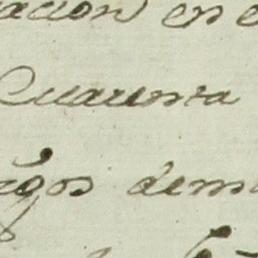 acion en e
Cuarenta
rgos dema